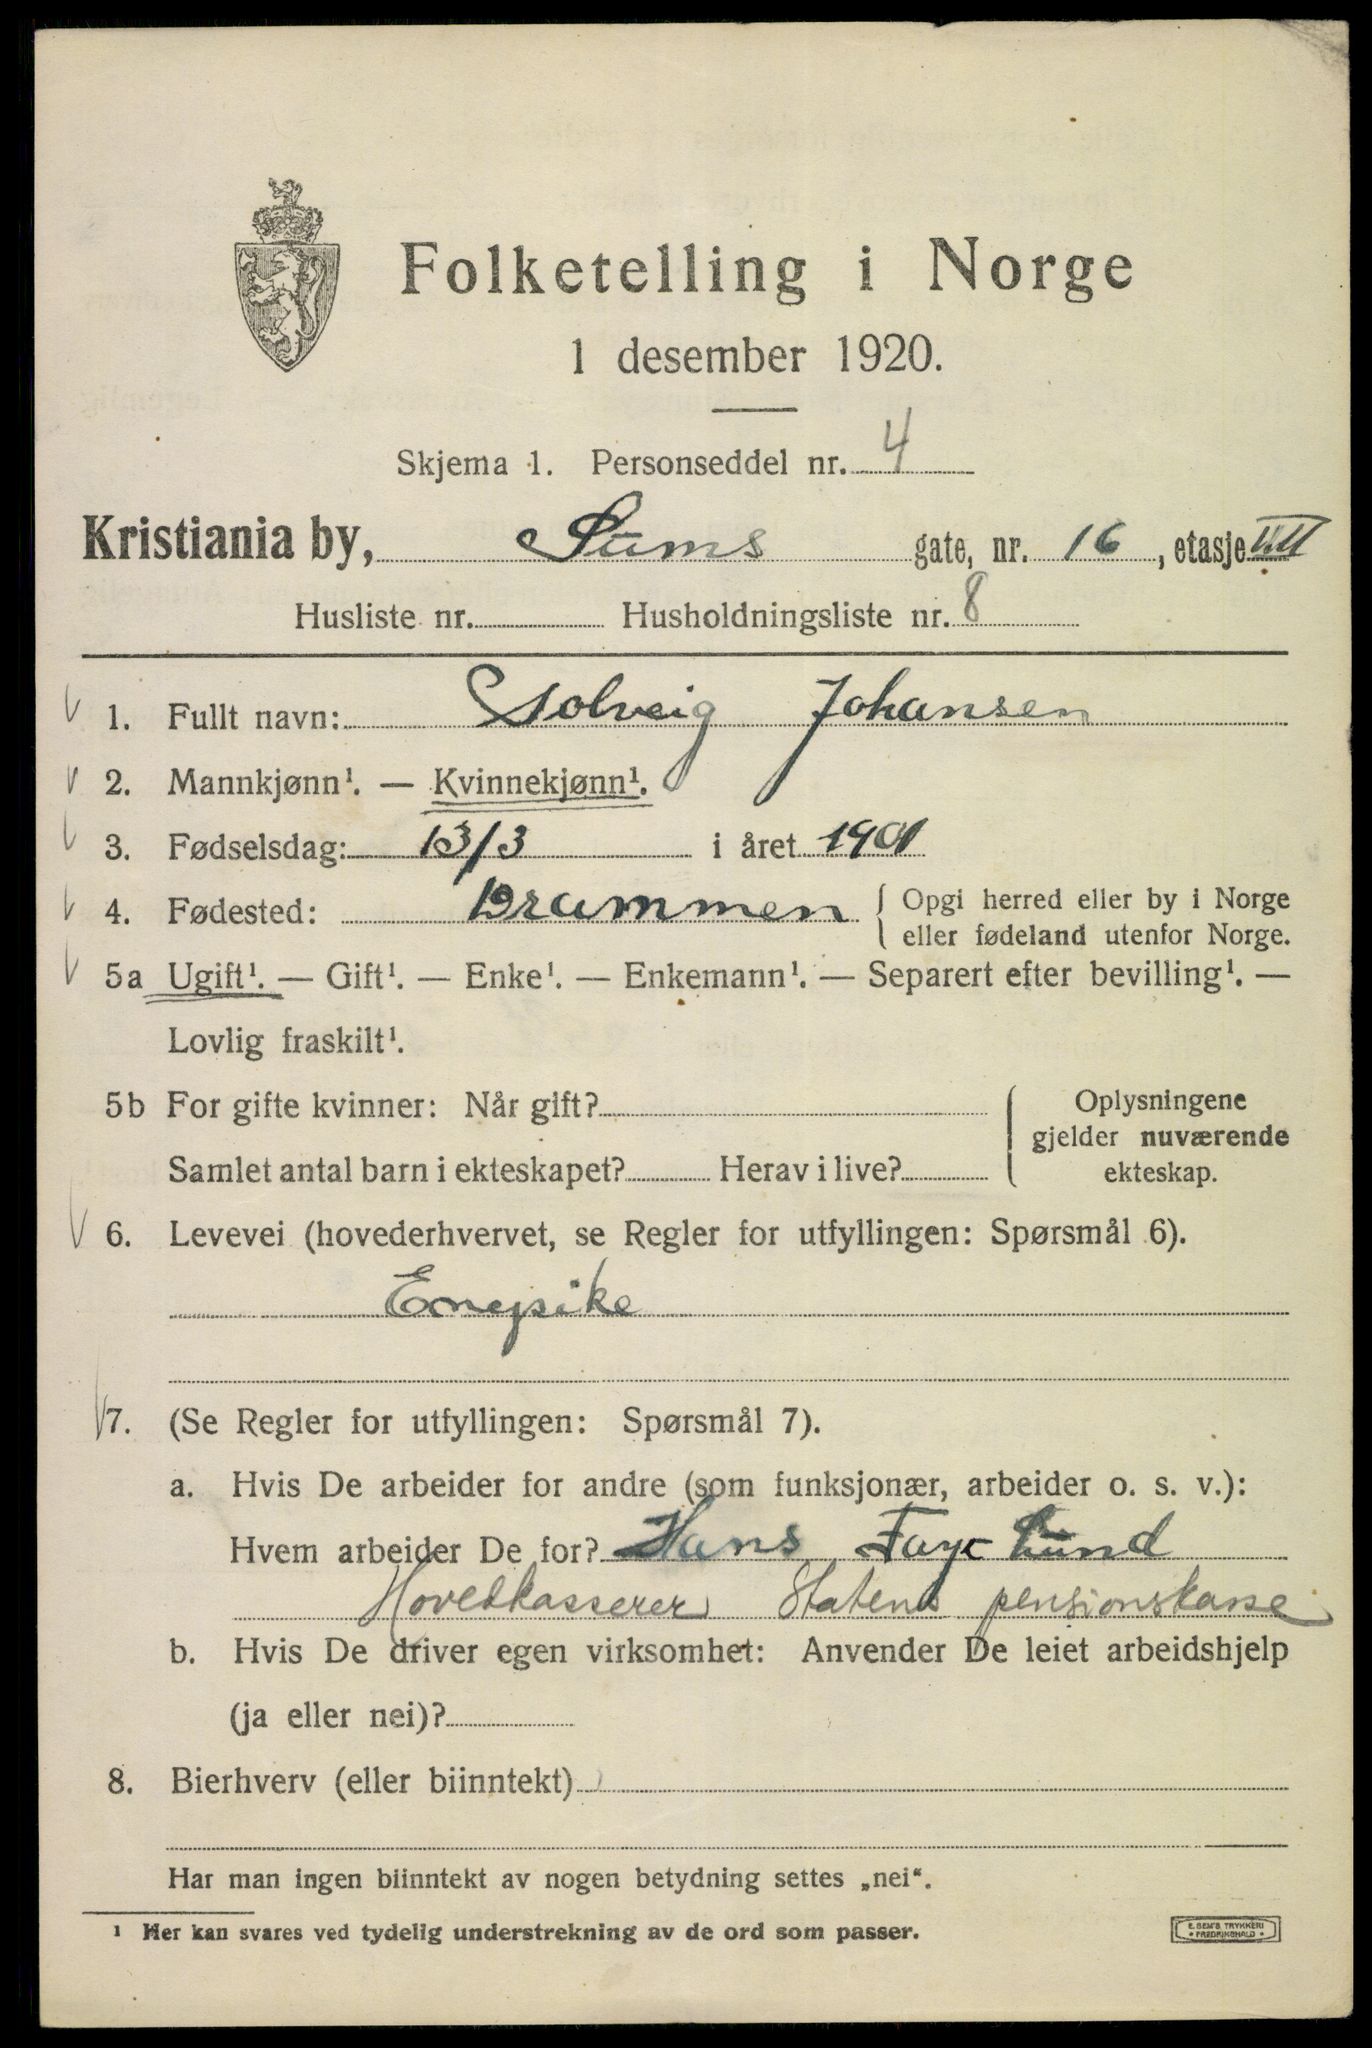 Folketelling i Norge
1 desember 1920.
Skjema 1. Personseddel nr. 4
Kristiania by, Sums gate, nr. 16, etasje VII
Husliste nr. Husholdningsliste nr. 8
1. Fullt navn: Solveig Johansen
2. Mannkjønn¹. — Kvinnekjønn¹.
3. Fødselsdag: 13/3 i året 1901
4. Fødested: Drammen { Opgi herred eller by i Norge
eller fødeland utenfor Norge.
5a Ugift¹. — Gift¹. — Enke¹. — Enkemann¹. — Separert efter bevilling¹. —
Lovlig fraskilt¹.
5b For gifte kvinner: Når gift?
Samlet antal barn i ekteskapet? Herav i live?
Oplysningene
gjelder nuværende
ekteskap.
6. Levevei (hovederhvervet, se Regler for utfyllingen: Spørsmål 6).
Enepike
7. (Se Regler for utfyllingen: Spørsmål 7).
a. Hvis De arbeider for andre (som funksjonær, arbeider o. s. v.):
Hvem arbeider De for? Hans Faye Lund
Hovedkasserer Statens pensionskasse
b. Hvis De driver egen virksomhet: Anvender De leiet arbeidshjelp
(ja eller nei)?
8. Bierhverv (eller biinntekt)
Har man ingen biinntekt av nogen betydning settes „nei“.
¹ Her kan svares ved tydelig understrekning av de ord som passer.
E. SEM'S TRYKKERI
• FREDRIKSHALD •